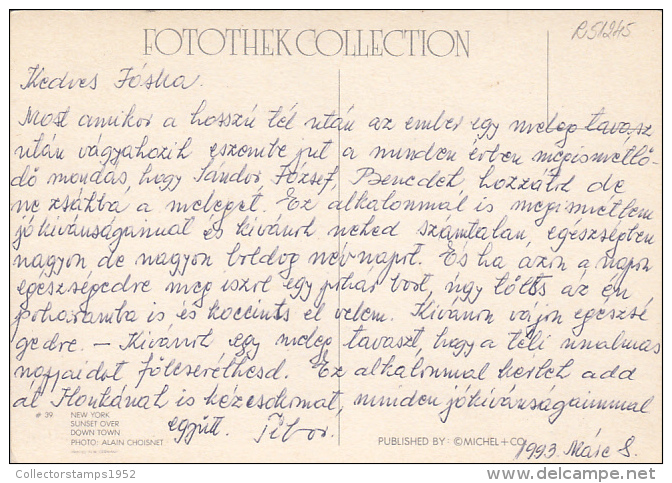 FOTOTHEK COLLECTION
R51245
Kedves Jóska.
Most amikor a hosszú tél után az ember egy meleg tavasz
után vágyahozik eszembe jut a minden évben megismétlő-
dő mondás, hogy Sándor, József, Benedek, hozzátok de
ne zsákba a meleget. Ez alkalommal is megismétlem
jókívánságaimat és kívánok neked számtalan, egészségben
nagyon de nagyon boldog névnapot. És ha azon a napon
egészségedre meg iszol egy pohár bort, úgy tölts az én
poharamba is és koccints el velem. Kívánom váljon egészsé
gedre. — Kívánok egy meleg tavaszt, hogy a téli unalmas
napjaidot fölcserélhesd. Ez alkalommal kérlek add
át Ilonkának is kézcsókomat, minden jókívánságaimmal
együtt. Tibor.
1993 Márc 8.
# 39 NEW YORK
SUNSET OVER
DOWN TOWN
PHOTO: ALAIN CHOISNET
PUBLISHED BY: ©MICHEL+CO
Collectorstamps1952